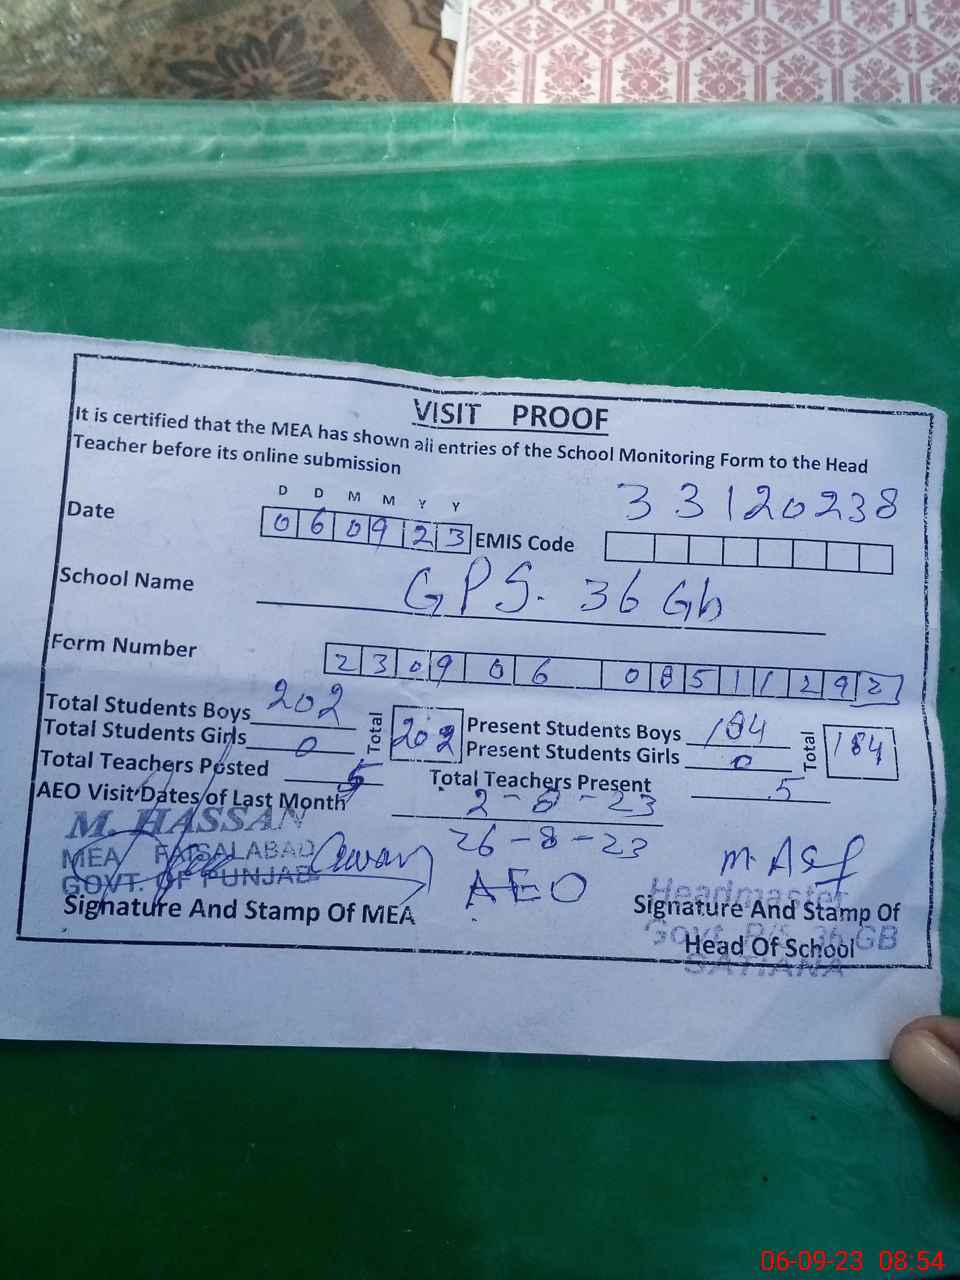 VISIT PROOF
It is certified that the MEA has shown all entries of the School Monitoring Form to the Head
Teacher before its online submission
D D M M Y Y
33120238
Date 060923 EMIS Code
School Name GPS. 36 Gb
Form Number 2309 06 08511292
Total Students Boys 202 Total 202 Present Students Boys 184 Total 184
Total Students Girls 0 Present Students Girls 0
Total Teachers Posted 5 Total Teachers Present 5
AEO Visit Dates of Last Month 2-8-23
26-8-23
M. HASSAN
MEA FAISALABAD
GOVT. OF PUNJAB
AEO
M. Asf
Headmaster
Signature And Stamp Of MEA
Signature And Stamp Of
Govt. P/S 36 GB
Head Of School
SATIANA
06-09-23 08:54